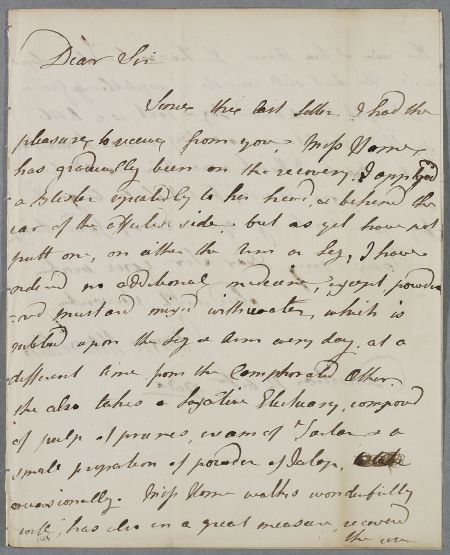 Dear Sir
Since the last letter I had the
pleasure to receive from you. Miss Horne
has gradually been on the recovery. I applyed
a Blister repeatedly to her head, & behind the
ear of the affected side. but as yet have not
putt one, on either the arm or Leg, I have
ordered no additional medicine, except powder
=ed mustard mixed with water, which is
rubbed upon the Leg & Arm every day, at a
different time from the Camphorated Æther.
She also takes a Laxative Electuary, composed
of pulp of prunes, cream of Tartar & a
small proportion of powder of Jalap,
occasionally. Miss Horne walks wonderfully
well, has also in a great measure, recovered
the use